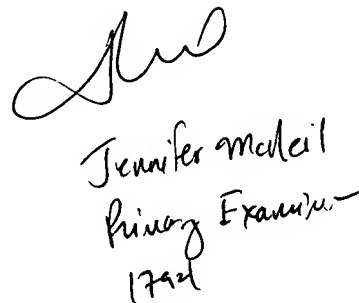 Jennifer McNeil
Primary Examiner